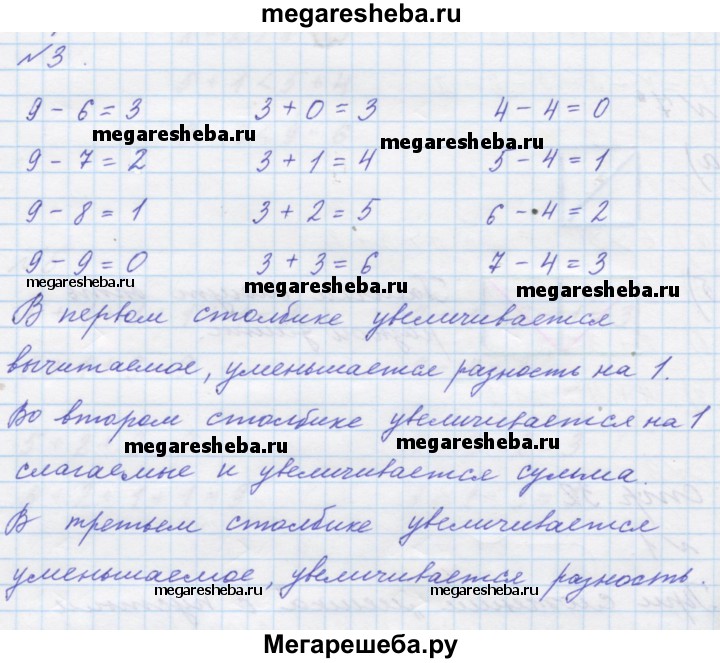 megaresheba.ru
№3.
9 - 6 = 3 3 + 0 = 3 4 - 4 = 0
megaresheba.ru megaresheba.ru
9 - 7 = 2 3 + 1 = 4 5 - 4 = 1
9 - 8 = 1 3 + 2 = 5 6 - 4 = 2
9 - 9 = 0 3 + 3 = 6 7 - 4 = 3
megaresheba.ru megaresheba.ru
В первом столбике увеличивается
вычитаемое, уменьшается разность на 1.
Во втором столбике увеличивается на 1
megaresheba.ru megaresheba.ru
слагаемые и увеличивается сумма.
В третьем столбике увеличивается
уменьшаемое, увеличивается разность.
Мегарешеба.ру